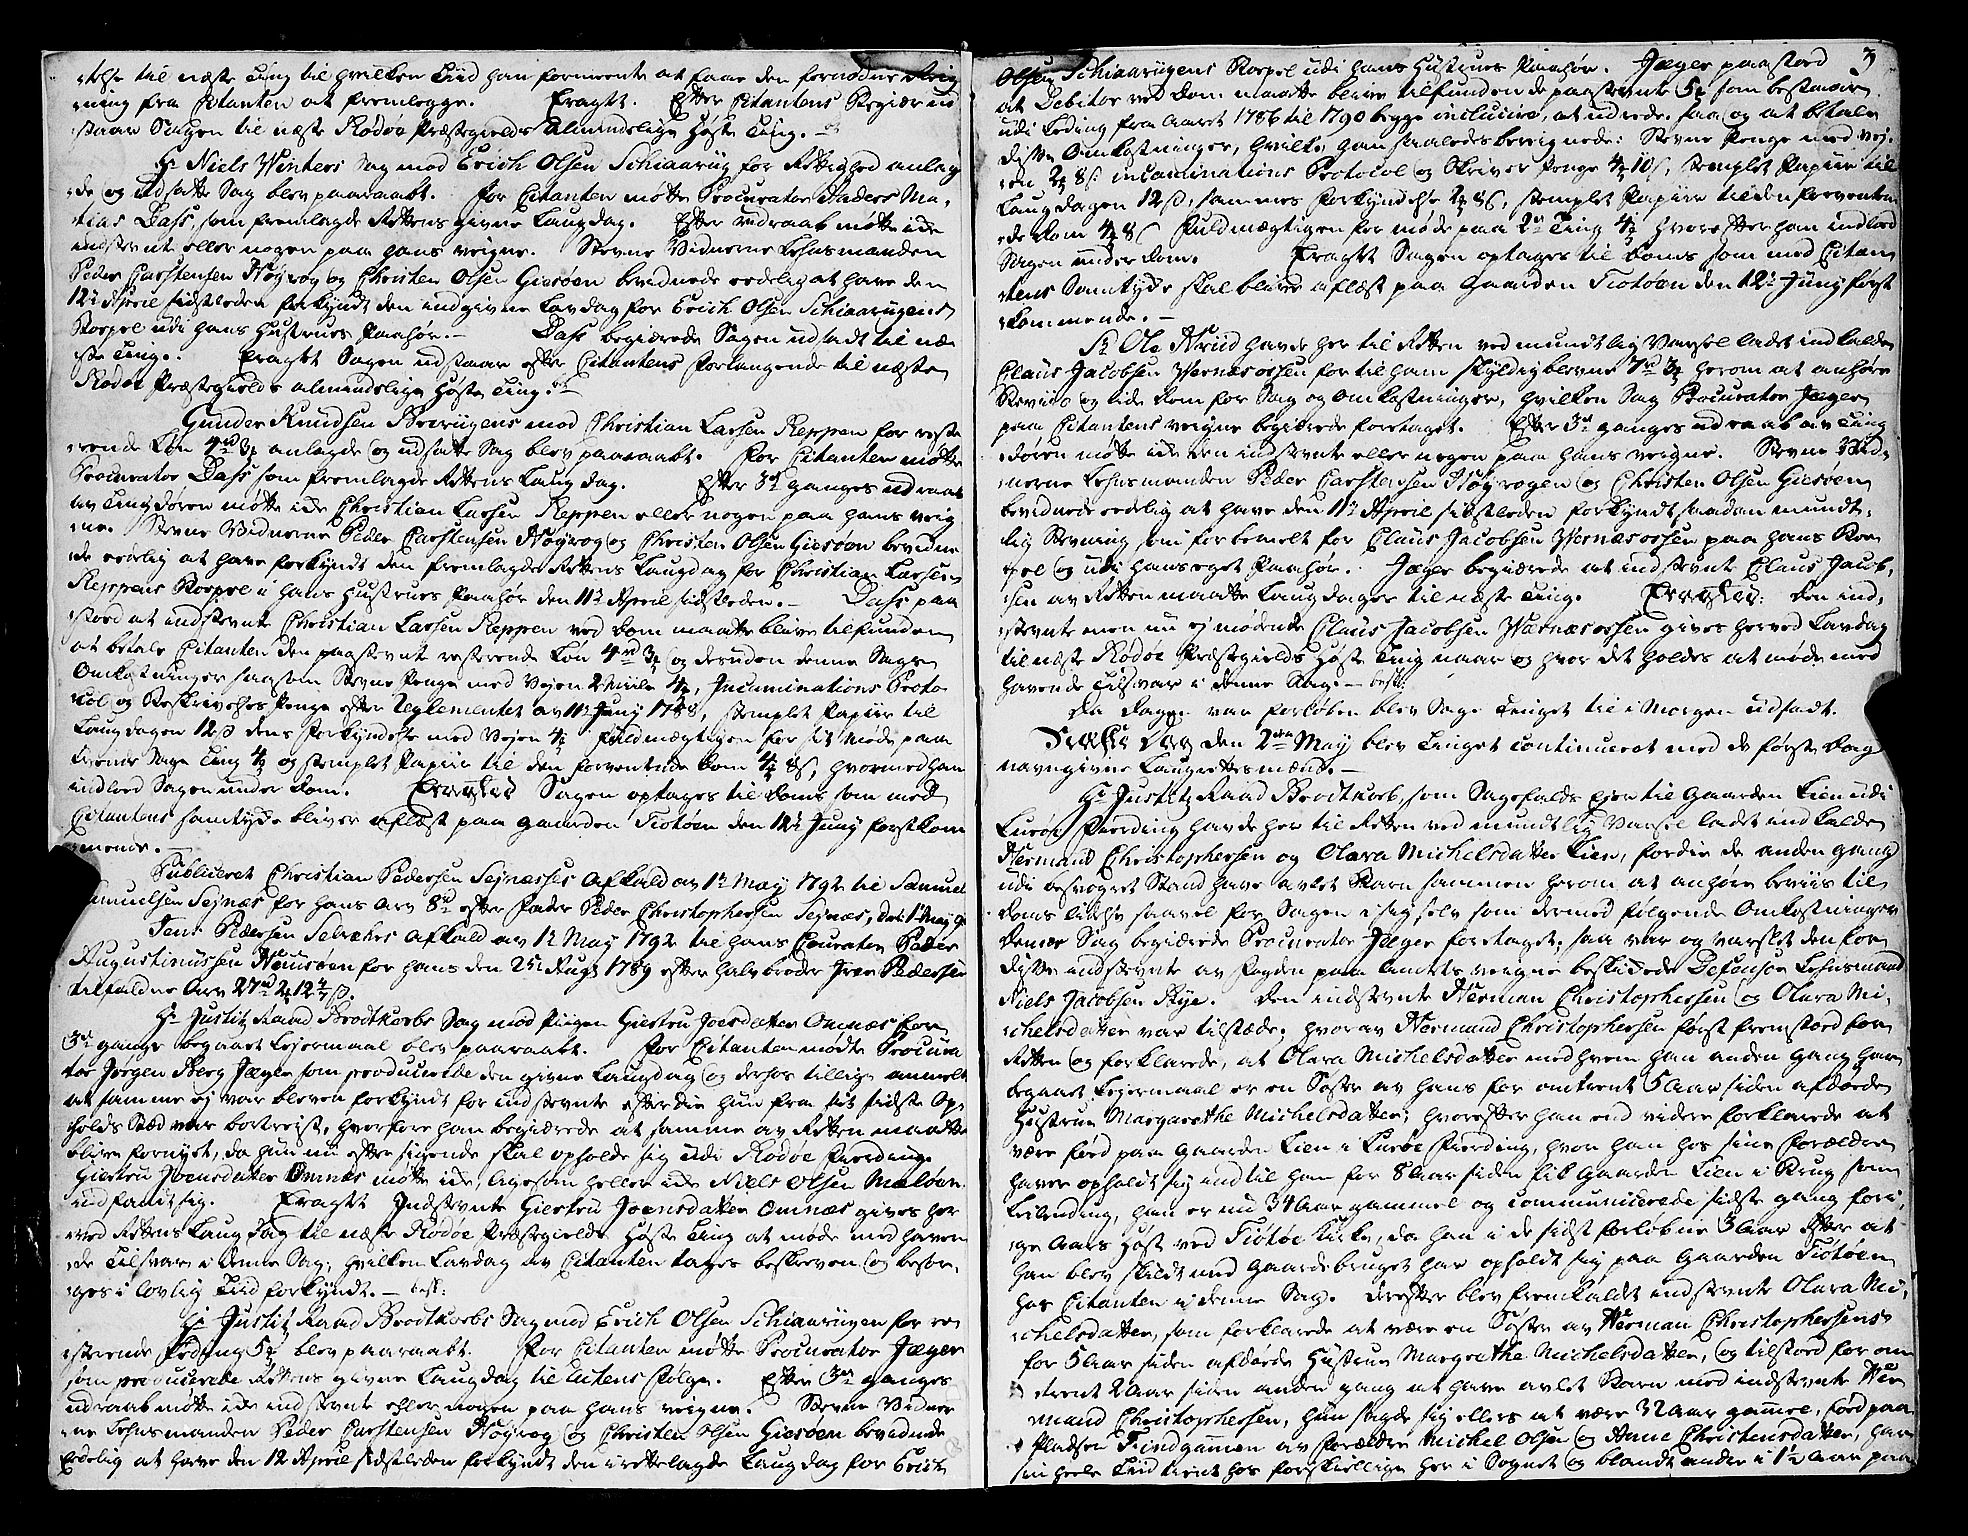 else til næste Ting til hvilken Tiid han formeente at faae den fornødne
ning fra Citanten at fremlegge. Eragtt. Efter Citantens Begiær ud
staar Sagen til næste Rödöe Præstegields Almindelige Höste Ting.
Hr Niels Winters Sag mod Erich Olsen Schiaarüig for Rettighed anlag
de og udsatte Sag blev paaraabt. For Citanten mötte Procurator Anders Ma,
tias Dass, som fremlagde Rettens givne Laugdag. Efter udraab mötte ide
indstevnte eller nogen paa hans veigne. Stevne Vidnerne Lehnsmanden
Peder Carstensen Nöyvog og Christen Olsen Giesöen bevidnede eedelig at have den
12te April sidstleden forkyndt den indgivne Lavdag for Erich Olsen Schiaarügens
Boepel udi hans Hustrues Paahör. — Dass begiærede Sagen udsadt til næ
ste Ting. Eragtt Sagen udstaar efter Citantens Forlangende til næste
Rödöe Præstegields almindelige Höste Ting.
Gunder Knudsen Breviigens mod Christian Larsen Reppen for reste
rende Lön 4rd 3 anlagde og udsatte Sag blev paaraabt. For Citanten mötte
Procurator Dass som fremlagde Rettens Laugdag. Efter 3de ganges udraab
av Tingdören mötte ide Christian Larsen Reppen eller nogen paa hans veig
ne. Stevne Vidnerne Peder Carstensen Nöyvog og Christen Olsen Giesöen bevidne
de eedelig at have forkyndt den fremlagde Rettens Laugdag for Christian Larsen
Reppens Boepel i hans Hustrues Paahör den 11te April sidstleden. — Dass paa
stod at indstevnte Christian Larsen Reppen ved Dom maatte blive tilfunden
at betale Citanten den paastevnte resterende Lön 4rd 3 og desuden denne Sags
Omkostninger saasom Stevne Penge med Veyen 2 Miile 4, Incaminations Proto
col og Beskrivelses Penge efter Reglementet av 11te Juny 1788, stemplet Papiir til
Laugdagen 12 s dens Forkyndelse med Veyen 4 Fuldmægtigen for sit Möde paa
denne Sags Ting 4 og stemplet Papiir til den forventende Dom 4 8s, hvormed han
indlod Sagen under Dom. Eragted Sagen optages til Doms som med
Citantens samtyke bliver aflæst paa Gaarden Tiötöen den 12te Juny förstkom
mende. —
Publiceret Christian Pedersen Sejnæsses Afkald av 1te May 1792 til Samuel
Samuelsen Sejnæs for hans Arv 8rd efter Fader Peder Christophersen Sejnæs, dat: 1te May 92
Jens Pedersen Selvæhes Afkald av 12 May 1792 til hans Curator Peder
Augustinussen Nounöen for hans den 25te Augt 1789 efter halvbroder Iver Pedersen
tilfaldne Arv 27rd 2 12 s.
Hr Justitz Raad Brodtkorbs Sag mod Pigen Giertru Joensdatter Omnæs for
3de gange begaaet Lejermaal blev paaraabt. For Citanten mödte Procura
tor Jörgen Berg Jæger som producerede den givne Laugdag og derhos tillige anmelte
at samme ej var bleven forkyndt for indstevnte efterdie hun fra sit sidste Op,
holds Stæd var bortreist, hvorfore han begiærede at samme av Retten maatte
blive fornyet, da hun nu efter sigende skal opholde sig udi Rödöe Fierding.
Giertru Joensdatter Omnæs mötte ide, ligesom heller ide Niels Olsen Melöen
indfandt sig. Eragtt Indstevnte Giertru Joensdatter Omnæs gives her
ved Rettens Laugdag til næste Rödöe Præstegields Höste Ting at möde med haven
de Tilsvar i denne Sag, hvilken Lavdag av Citanten tages beskreven og besör,
ges i lovlig Tiid forkyndt. — besk:
Hr Justitz Raad Brodtkorbs Sag mod Erich Olsen Schiaarügen for re
sterende Leding 5 blev paaraabt. For Citanten mötte Procurator Jæger
som producerede Rettens givne Laugdag til Actens fölge. Efter 3de ganges
udraab mötte ide indstevnte eller nogen paa hans veigne. Stevne Vidner
ne Lehnsmanden Peder Carstensen Nöyvog og Christen Olsen Giesöen bevidnede
Eedelig at have den 12 April sidstleden forkyndt den irettelagde Laugdag for Erich
3
Olsen Schiaarügens Boepel udi hans Hustrues Paahör. Jæger paastod
at Debitor ved Dom maatte blive tilfunden de paastevnte 5 som bestaaer
udi Leding fra Aaret 1786 til 1790 begge inclusive, at udrede saa og at betale
diste Omkostninger, hvilke han saaledes beregnede: Stevne Penge med Vej,
en 2 8s incaminations Protocol og Skriver Penge 4 10s, stemplet Papiir til
Laugdagen 12s, sammes Forkyndelse 2 8s, stemplet Papiir til den forventen
de Dom 4 8s Fuldmægtigen for möde paa 2de Ting 4 hvorefter han indlod
Sagen under Dom. Eragtt Sagen optages til Doms som med Citan
tens Samtyke skal blive aflæst paa Gaarden Tiotöen den 12te Juny först
kommende. —
Sr Ole Krüd havde her til Retten ved mundtlig Varsel ladet indkalde
Claus Jacobsen Wærnæsossen for til ham skyldig blevne 7rd 3 herom at anhöre
Beviis og lide Dom for Sag og Omkostninger, hvilken Sag Procurator Jæger
paa Citantens veigne begiærede foretaget. Efter 3de ganges udraab av Ting
dören mötte ide den indstevnte eller nogen paa hans veigne. Stevne Vid,
nerne Lehnsmanden Peder Carstensen Nöyvogen og Christen Olsen Giesöen
bevidnede eedelig at have den 11te April sidstleden forkyndt saadan mundt,
lig Stevning som forbemelt for Claus Jacobsen Wernæsossen paa hans Boe
pel og udi hans eget Paahör. Jæger begiærede at indstevnte Claus Jacob,
sen av Retten maatte Laugdages til næste Ting. Eragted: Den ind,
stevnte men nu ej mödende Claus Jacobsen Wærnæsossen gives herved Lavdag
til næste Rödöe Præstegields Höste Ting naar og hvor det holdes at möde med
havende Tilsvar i denne Sag. — besk:
Da Dagen var forlöben blev Sage Tinget til i Morgen udsadt.
den 2den May blev Tinget continueret med de förste Dag
navngivne Laugrettesmænd. —
Hr Justitz Raad Brodtkorb, som Sagefalds Ejer til Gaarden Lien udi
Luröe Fierding havde her til Retten ved mundtlig Varsel ladet indkalde
Hermand Christophersen og Olava Michelsdatter Lien, fordie de anden gang
udi besvogret Stand have avlet Barn sammen herom at anhöre beviis til
Doms lidelse saavel for Sagen i sig selv som dermed fölgende Omkostninger
denne Sag begiærede Procurator Jæger foretaget, saa var og varslet den for
diste indstevnte av Fogden paa Amtets veigne beskikkede Defensor Lehnsmand
Niels Jacobsen Rye. Den indstevnte Herman Christophersen og Olava Mi,
chelsdatter var tilstæde, hvorav Hermand Christophersen först fremstod for
Retten og forklarede, at Olava Michelsdatter med hvem han anden gang har
begaaet Lejermaal er en Söster av hans for omtrent 5 Aar siden afdöde
Hustrue Margarethe Michelsdatter; hvorefter han end videre forklarede at
være föd paa Gaarden Lien i Luröe Fierding, hvor han hos sine Forældre
haver opholdt sig indtil han for 8 Aar siden fik Gaarden Lien i Brug som
Leilending, han er nu 34 Aar gammel og communicerede sidste gang fori,
ge Aars Höst ved Tiötöe Kirke, da han i de sidst forlöbne 3 Aar efter at
han blev skildt ved Gaardebruget har opholdt sig paa Gaarden Tiötöen
hos Citanten i denne Sag. Derefter blev fremkaldt indstevnte Olava Mi,
chelsdatter, som forklarede at være en Söster av Herman Christophersens
for 5 Aar siden afdöde Hustrue Margrethe Michelsdatter, og tilstod for om
trent 2 Aar siden anden gang at have avlet Barn med indstevnte Her
mand Christophersen, hun sagde sig ellers at være 32 Aar gammel, föd paa
Pladsen Findgammen av Forældre Michel Olsen og Anne Christensdatter, har
sin heele Tiid tient hos forskiellige her i Sognet og blandt andre i 1½ Aar paa